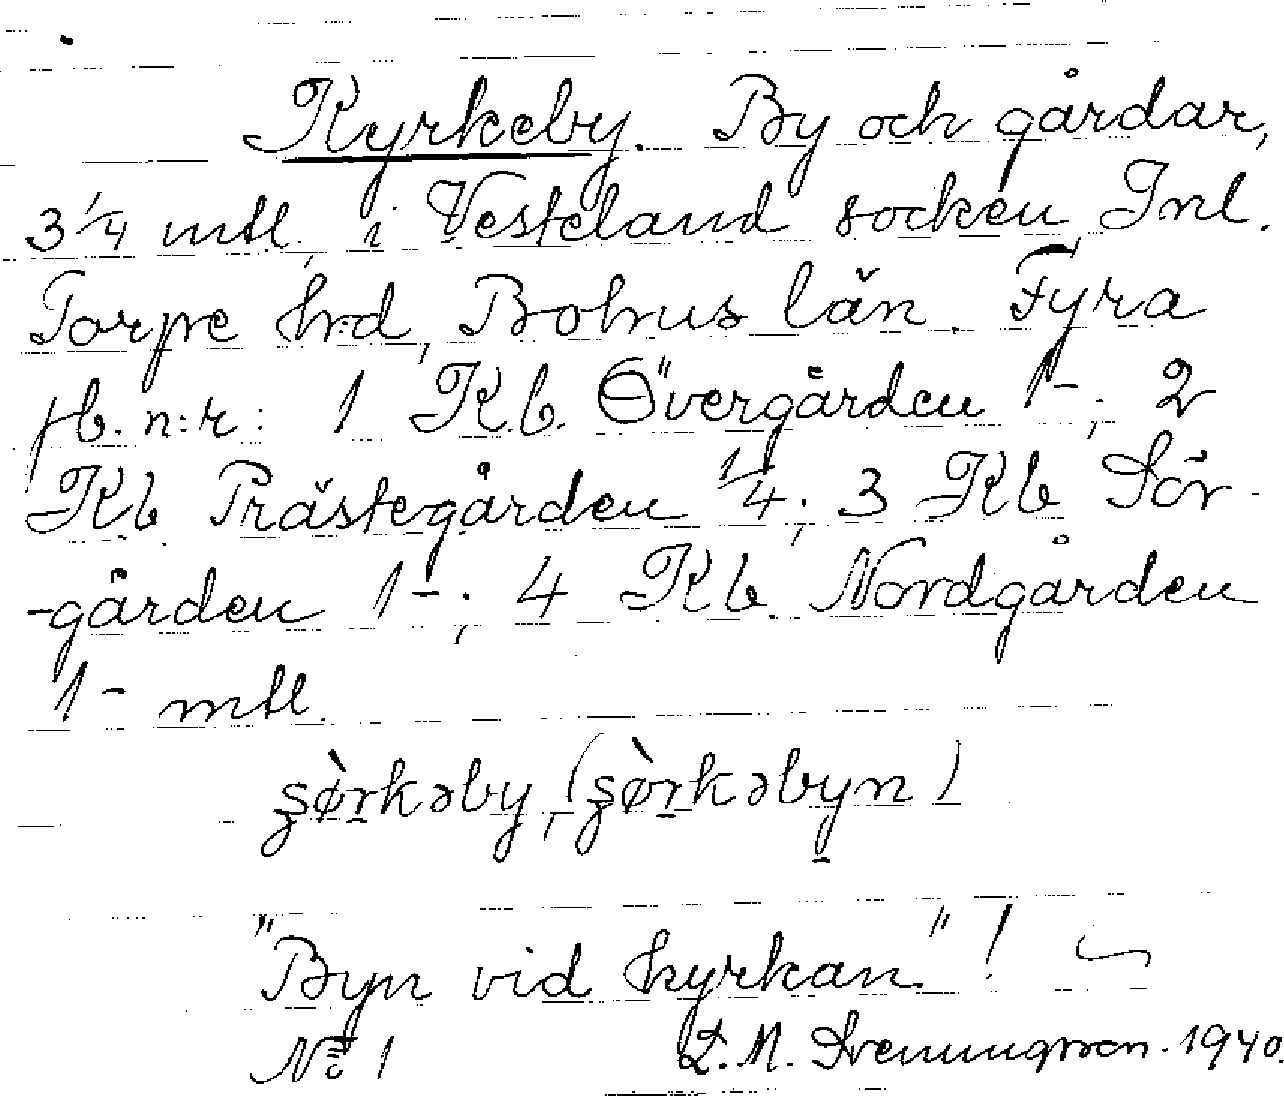 Kyrkeby. By och gårdar,
3 1/4 mtl. i Vesteland socken, Inl.
Torpe hrd, Bohus län. Fyra
jb. n:r: 1 Kb. Övergården 1-; 2
Kb Prästegården 1/4; 3 Kb Sör-
-gården 1-; 4 Kb Nordgården
1- mtl.
ʂø̀rkəby, (ʂø̀rkəbyn)
"Byn vid kyrkan"!
No 1
L. M. Svenungsson. 1940.